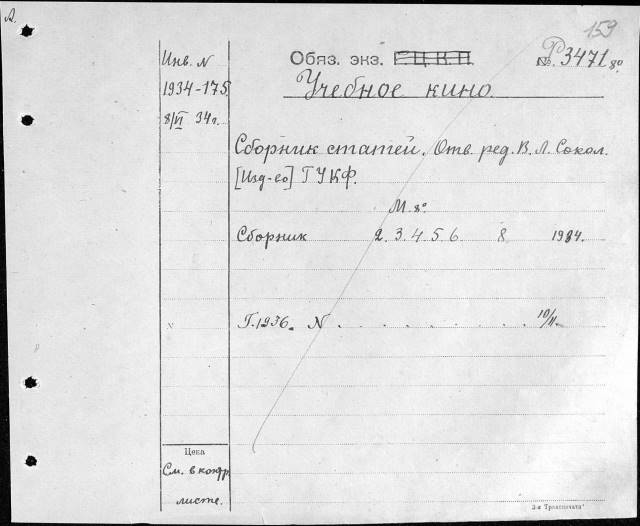 А.
159
Инв. N
1934-175
8/VI 34г.
Обяз. экз. Г.Ц.К.П. № Р3471 8о.
Учебное кино.
Сборник статей. Отв. ред. В. Л. Сокол.
[Изд-во] ГУКФ.
М. 8о
Сборник 2. 3. 4. 5. 6 8 1934.
Г. 1936. N . . . . . . . . . . 10/II
Цена
См. в контр.
листе.
3-я Транспечати